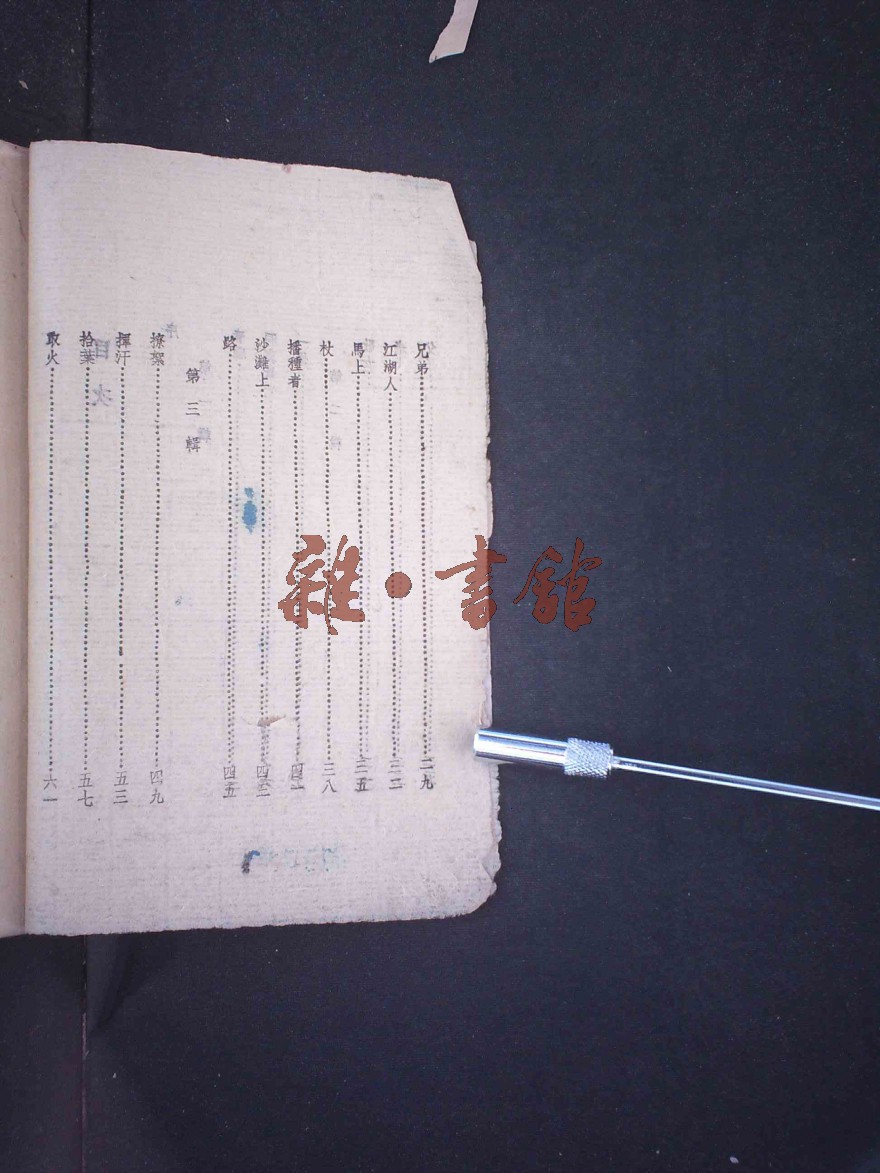 兄弟……………………二九
江湖人……………………三二
馬上……………………三五
杖……………………三八
播種者……………………四一
沙灘上……………………四三
路……………………四五
第三輯
撩絮……………………四九
揮汗……………………五三
拾葉……………………五七
取火……………………六一
目次
雜·書館